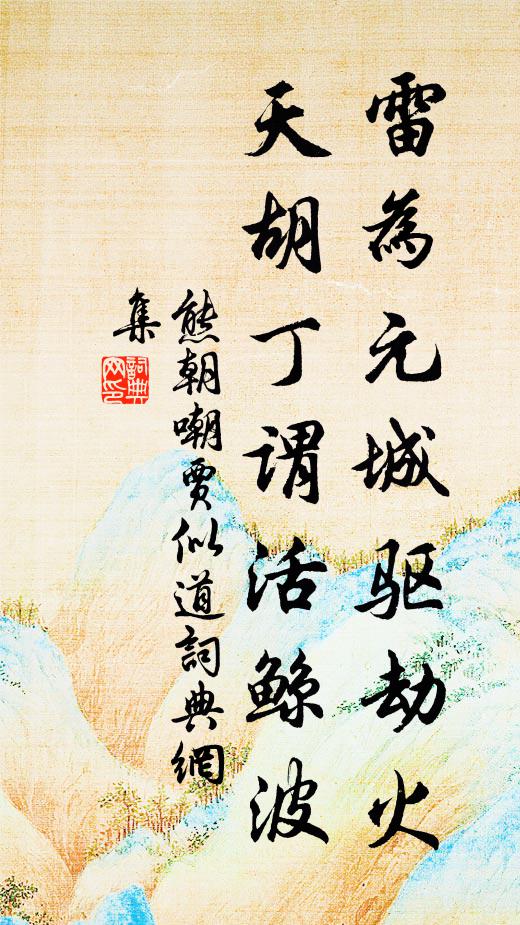 雷為元城驱劫火
天胡丁谓活鲸波
熊朝嘲賈似道詞典網
集
詞典
网印